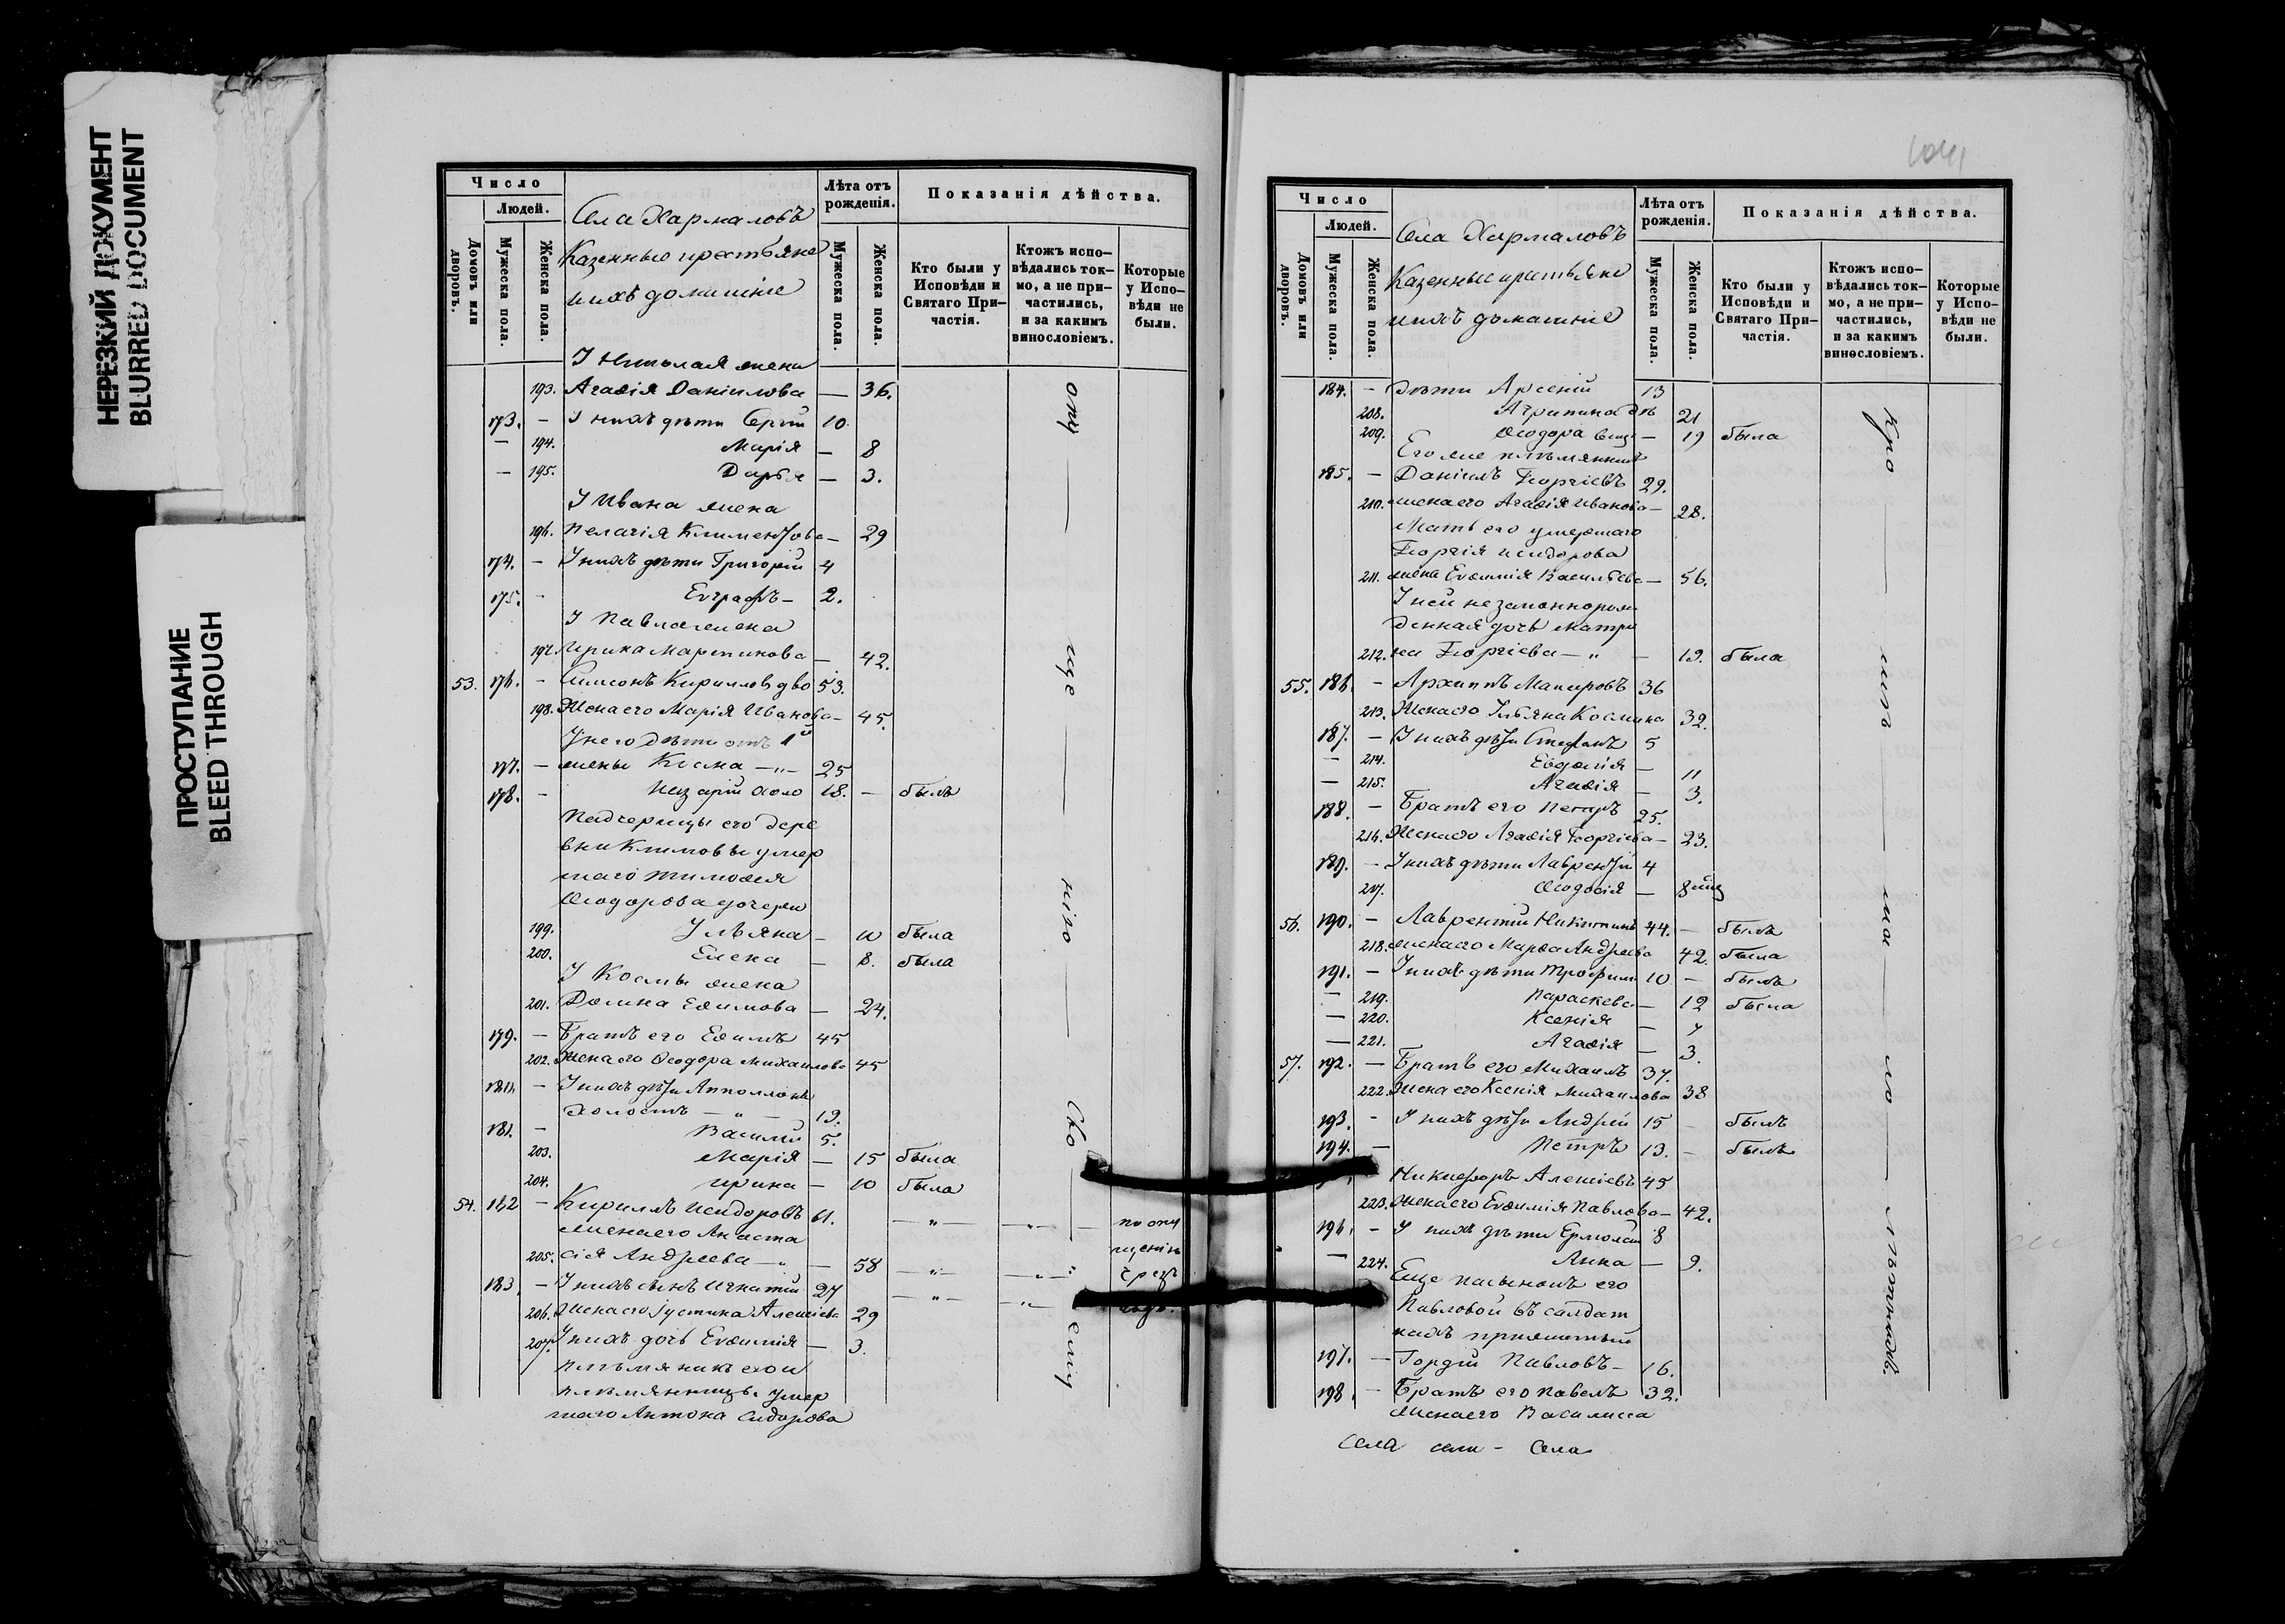 НЕРЕЗКИЙ ДОКУМЕНТ
BLURRED DOCUMENT
ПРОСТУПАНИЕ
BLEED THROUGH
Число
Людей.
Домовъ или дворовъ.
Мужеска пола.
Женска пола.
Села Хармаловъ
Казенные крестьяне
и ихъ домашніе
Лѣта отъ рожденія.
Мужеска пола.
Женска пола.
Показанія дѣйства.
Кто были у Исповѣди и Святаго При-частія.
Ктожъ испо-вѣдались ток-мо, а не при-частились, и за какимъ винословіемъ.
Которые у Испо-вѣди не были.
У Николая жена
193. Агафія Даніилова — 36.
173. — У нихъ дѣти Сергій 10.
— 194. Марія — 8
— 195. Дарья — 3.
У Ивана жена
196. Пелагія Климентова — 29
174. — У нихъ дѣти Григорій 4
175. — Евграфъ — 2.
У Павла жена
197. Ирина Мартинова — 42.
53. 176. — Симеонъ Кирилловъ дво 53.
198. Жена его Марія Иванова — 45.
У него дѣти отъ 1й
177. — жены Косма — „ — 25
178. — Назарій холо 18. — былъ
Падчерицы его дере
вни Климовы умер
шаго Тимофея
Ѳеодорова дочери
199. Ульяна — 10 была
200. Елена — 8. была
У Космы жена
201. Домна Ефимова — 24.
179. — Братъ его Ефимъ 45
202. Жена его Ѳеодора Михаилова 45
180. — У нихъ дѣти Апполлонъ
холостъ — „ — 19.
181. — Василій 5.
203. Марія — 15 была
204. Ирина — 10 была
54. 182 — Кириллъ Исидоровъ 61. — „ — „ — по опу
жена его Анаста щенію
205. сія Андреева — „ — 58 — „ — „ чрезъ
183. — У нихъ сынъ Игнатій 27 — „ — „ —
206. Жена его Іустина Алексіева 29
207. У нихъ дочь Евфимія — 3.
племянникъ его и
племянницы умер
шаго Антона Сидорова
Число
Людей.
Домовъ или дворовъ.
Мужеска пола.
Женска пола.
Села Хармаловъ
Казенные крестьяне
и ихъ домашніе
Лѣта отъ рожденія.
Мужеска пола.
Женска пола.
Показанія дѣйства.
Кто были у Исповѣди и Святаго При-частія.
Ктожъ испо-вѣдались ток-мо, а не при-частились, и за какимъ винословіемъ.
Которые у Испо-вѣди не были.
184. — дѣти Арсеній 13
208. Агрипина 21
209. Ѳеодора — 19 была
Его же племянникъ
185. — Даніилъ Георгіевъ 29.
210. жена его Агафія Иванова — 28.
Мать его умершаго
Георгія Исидорова
211. жена Евфимія Васильева — 56.
У ней незаконнорож
денная дочь Матро
212. на Георгіева — „ — 19. была
55. 186. — Архиппъ Макаровъ 36
213. Жена его Ульяна Космина 32.
187. — У нихъ дѣти Стефанъ 5
— 214. Евдокія — 11
— 215. Агафія — 3.
188. — Братъ его Петръ 25.
216. Жена его Агафія Георгіева — 23.
189. — У нихъ дѣти Лаврентій 4
217. Ѳеодосія — 8 мцъ
56. 190. — Лаврентій Никитинъ 44. — былъ
218. жена его Марфа Андреева 42. была
191. — У нихъ дѣти Трофимъ 10 — былъ
— 219. Параскева — 12 была
— 220. Ксенія — 7
— 221. Агафія — 3.
57. 192. — Братъ его Михаилъ 37.
222. Жена его Ксенія Михаилова 38
193. — У нихъ дѣти Андрей 15 — былъ
194. — Петръ 13. — былъ
Никифоръ Алексіевъ 45
223. Жена его Евфимія Павлова — 42.
196. — У нихъ дѣти Ермолай 8
— 224. Анна — 9.
Еще пасынокъ его
Павловой въ солдат
кахъ прижитый
197. — Гордій Павловъ — 16.
198. — Братъ его Павелъ 32.
жена его Василиса